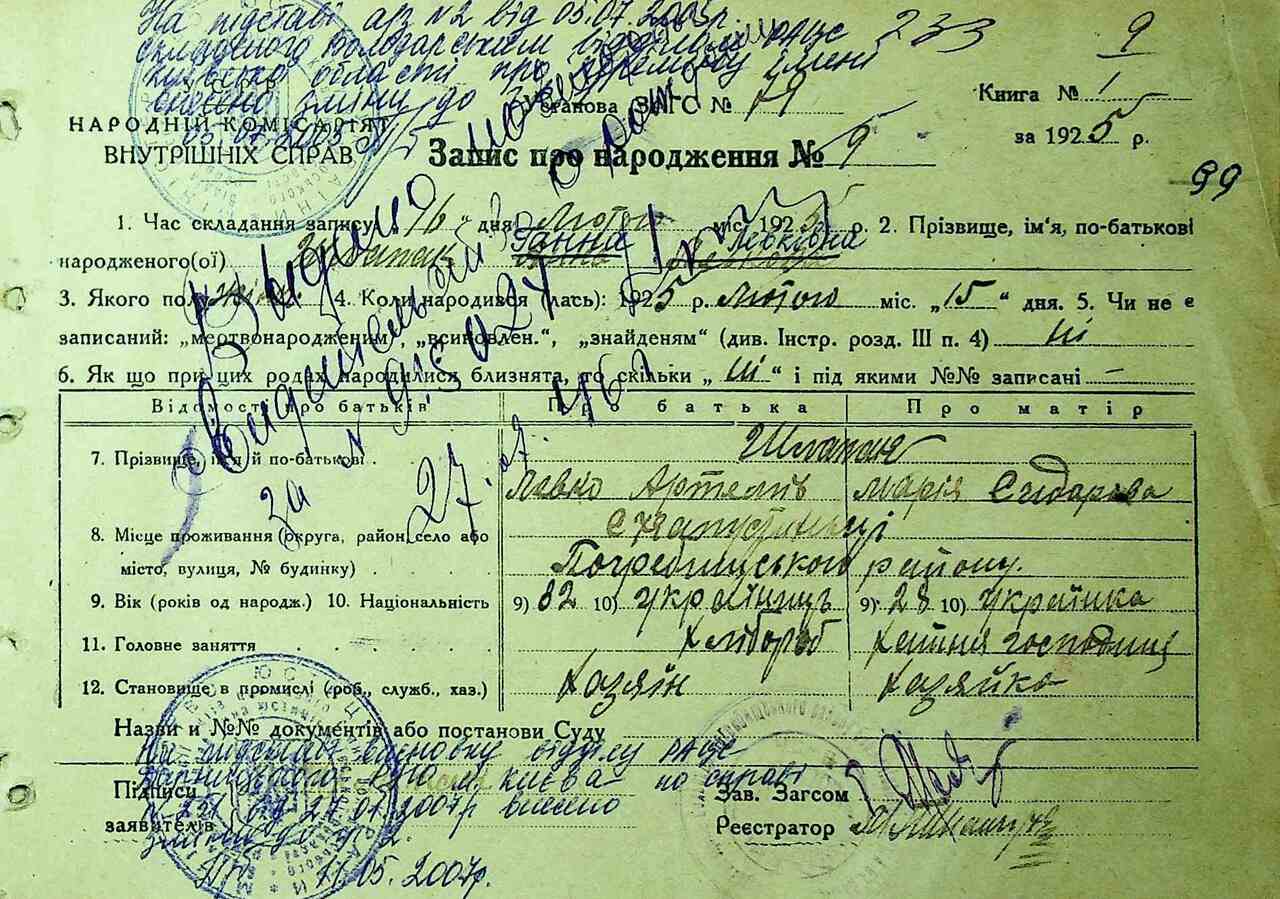 На підставі а/з №2 від 05.07.2003р.
складеного Володарським відділом РАЦС 233 9
Київської області про переміну імені
внесено зміни до
УСРР
Установа ЗАГС № 79 Книга № 1
05.07.2003
НАРОДНІЙ КОМІСАРІЯТ
ВНУТРІШНІХ СПРАВ
за 1925 р.
Запис про народження № 9
99
1. Час складання запису: „16“ дня Лютого міс. 1925 р. 2. Прізвище, ім'я, по-батькові
Ганна Левківна
народженого(ої)
3. Якого полу жін. 4. Коли народився (лась): 1925 р. Лютого міс. „15“ дня. 5. Чи не є
записаний: „мертвонародженим“, „всиновлен.“, „знайденям“ (див. Інстр. розд. III п. 4) ні
6. Як що при цих родах народилися близнята, то скільки „ні“ і під якими №№ записані –
Відомості про батьків Про батька Про матір
7. Прізвище, ім'я й по-батькові Шлапак
Левко Артемів Марія Сидорова
8. Місце проживання (округа, район, село або
місто, вулиця, № будинку) Погребищського району.
9. Вік (років од народж.) 10. Національність 9) 32 10) українець 9) 28 10) українка
11. Головне заняття Хлібороб хатня господиня
12. Становище в промислі (роб., служб., хаз.) Хазяїн Хазяйка
Назви и №№ документів або постанови Суду
На підставі висновку відділу РАЦС
м. Києва по справі
Підписи
заявителів
2007р внесено
зміни до гр. 2.
11.05.2007р.
Зав. Загсом
Реєстратор
Выдано
повторное
свидетельство о рожд
за № 945024
27.07.46 г